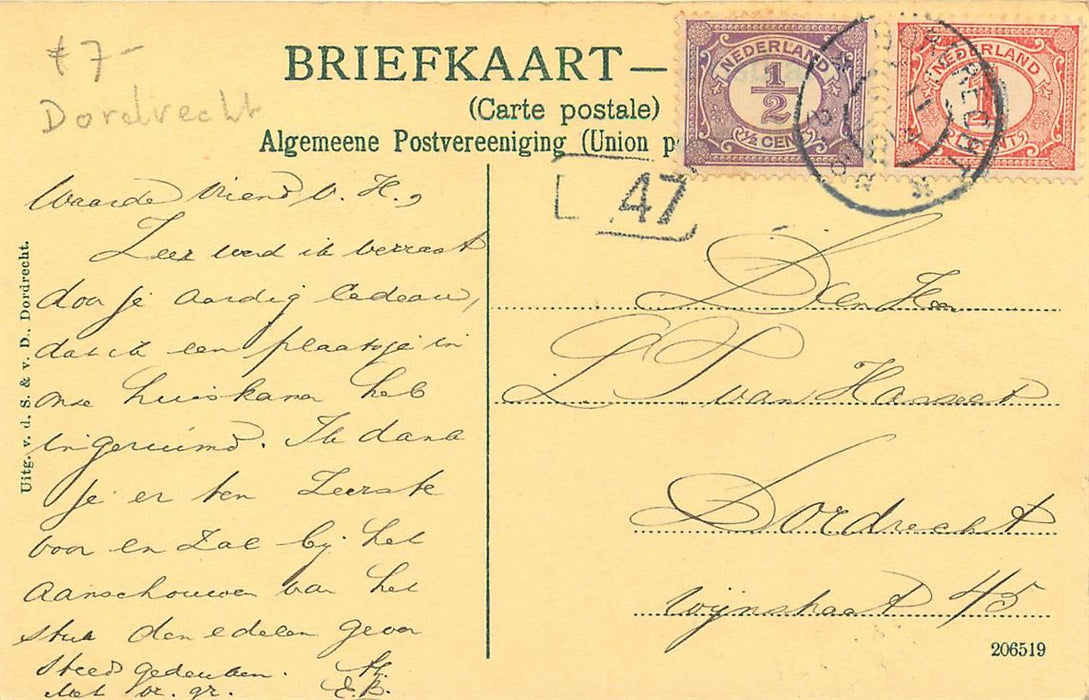 ƒ 7-
Dordrecht
BRIEFKAART —
(Carte postale)
Algemeene Postvereeniging (Union p
NEDERLAND
1/2
1/2 CENT
NEDERLAND
1
CENT
DORDRECHT
47
Uitg. v. d. S. & v. D. Dordrecht.
Waarde Vriend v. H.,
Zeer werd ik verrast
door je aardig Cadeau,
dat ik een plaatsje in
onze huiskamer heb
ingeruimd. Ik dank
je er ten Zeerste
voor en Zal bij het
aanschouwen van het
stuk den edelen gever
steeds gedenken.
Met vr. gr. E.B.
Den Heer
van Hasselt
Dordrecht
Wijnstraat 45
206519